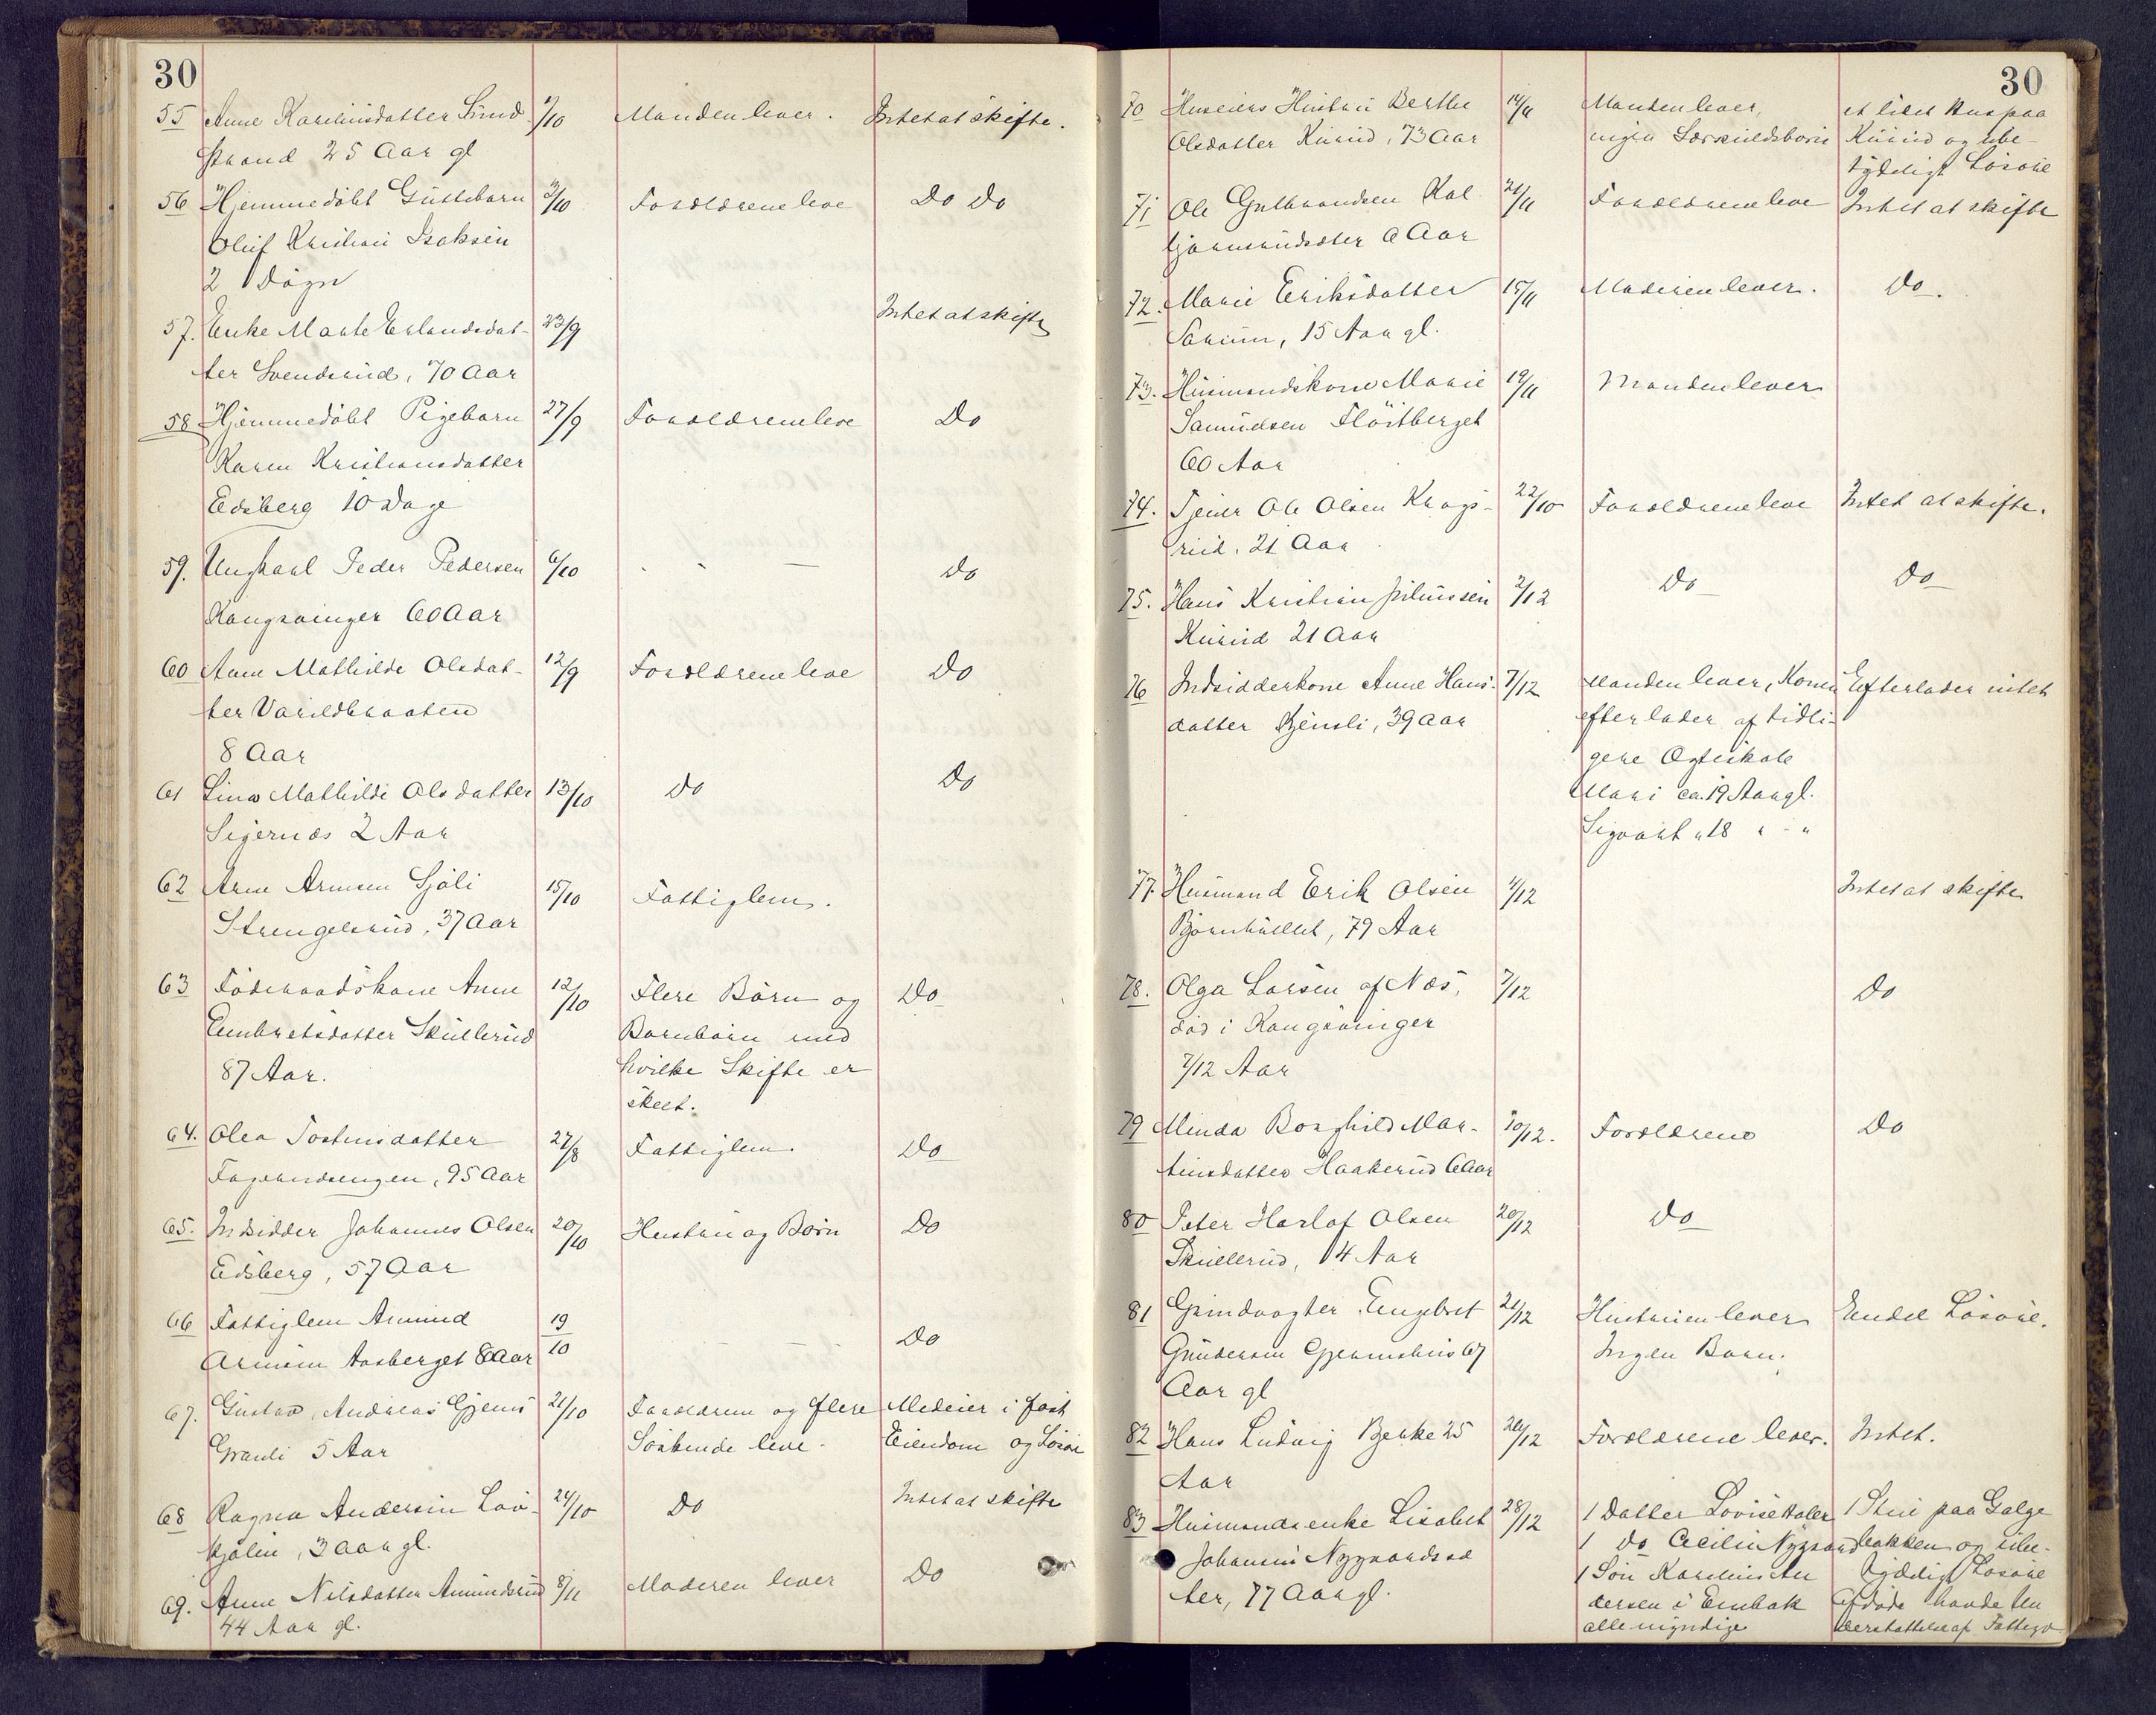 30
55 Anne Karelinisdatter Sund- 1/10 Manden lever. Intet at skifte.
strand 25 Aar gl
56 Hjemmedöbt Guttebarn 3/10 Forældrene leve Do Do
Oluf Kristian Isaksen
2 Døgn
57. Enke Marte Erlandsdat- 23/9 Intet at skifte
ter Svendsrud, 70 Aar
58 Hjemmedöbt Pigebarn 27/9 Forældrene leve Do
Karen Kristiansdatter
Edsberg 10 Dage
59. Ungkarl Peder Pedersen 6/10 - - — Do
Kongsvinger 60 Aar
60 Anne Mathilde Olsdat- 12/9 Forældrene leve Do
ter Varildbraaten
8 Aar
61 Lina Mathilde Olsdatter 13/10 Do Do
Sigernæs 2 Aar
62 Arne Arnesen Sjöli 15/10 Fattiglem.
Strengelsrud, 37 Aar
63 Föderaadskone Anne 12/10 Flere Börn og Do
Embretsdatter Skullerud Barnebörn med
87 Aar. hvilke Skifte er
skeet.
64. Olea Tostensdatter 27/8 Fattiglem. Do
95 Aar
65. Indsidder Johannes Olsen 20/10 Hustru og Börn Do
Edsberg, 57 Aar
66 Fattiglem Amund 19/10 — — Do
Arnesen Aasberget 8 Aar
67. Gustav Andreas Gjems 21/10 Forældrene og flere Medeier i fast
Granli 5 Aar Söskende leve. Eiendom og Lösöre
68 Ragna Andersen Löv- 24/10 Do Intet at skifte
hjölen, 3 Aar gl.
69. Anne Nilsdatter Amundsrud 8/11 Moderen lever Do
44 Aar gl.
30
70 Huseiers Hustru Berthe 14/11 Manden lever, et lidet Hus paa
Olsdatter Kurud, 73 Aar ingen Særkuldsbörn Kurud og ube-
tydeligt Lösöre
71 Ole Gulbrandsen Kol- 21/11 Forældrene leve Intet at skifte
bjørnsrudsæter 6 Aar
72. Marie Eriksdatter 15/11 Moderen lever. Do.
15 Aar gl.
73. Husmandskone Marie 19/11 Manden lever
Samuelsen Flöitberget
60 Aar
74. Tjener Ole Olsen Krogs- 22/10 Forældrene leve Intet at skifte.
rud, 21 Aar
75. Hans Kristian Juliussen 2/12 Do Do
Kurud 21 Aar
76 Indsidderkone Anne Hans- 7/12 Manden lever, Konen Efterlader intet
datter 39 Aar efterlader af tidli-
gere Ægteskab
Mari ca. 19 Aar gl.
Sigvart " 18 " - "
77. Husmand Erik Olsen 4/12 Intet at skifte
Björnhullet, 79 Aar
78. Olga Larsen af Næs, 7/12 Do
död i Kongsvinger
7/12 Aar
79 Minda Borghild Mar- 10/12. Forældrene Do
tinsdatter Haakerud 6 Aar
80 Peter Harlof Olsen 20/12 Do
Skullerud, 14 Aar
81 Grindvogter Engebret 21/12 Hustruen lever Endel Lösöre.
Gundersen Gjermshus 67 Ingen Barn.
Aar gl
82 Hans Ludvig Bjerke 25 26/12 Forældrene lever. Intet.
Aar
83 Husmandsenke Lisabet 28/12 1 Datter Lovise Holer 1 Stue paa Galge-
Johansen Nygaardsæ- 1 Do Cecilie Nygaard bakken og ube-
ter, 77 Aar gl. 1 Sön Karelius An- tydeligt Lösöre
dersen i Embak Afdöde havde Un-
alle myndige derstöttelse af Fattigv